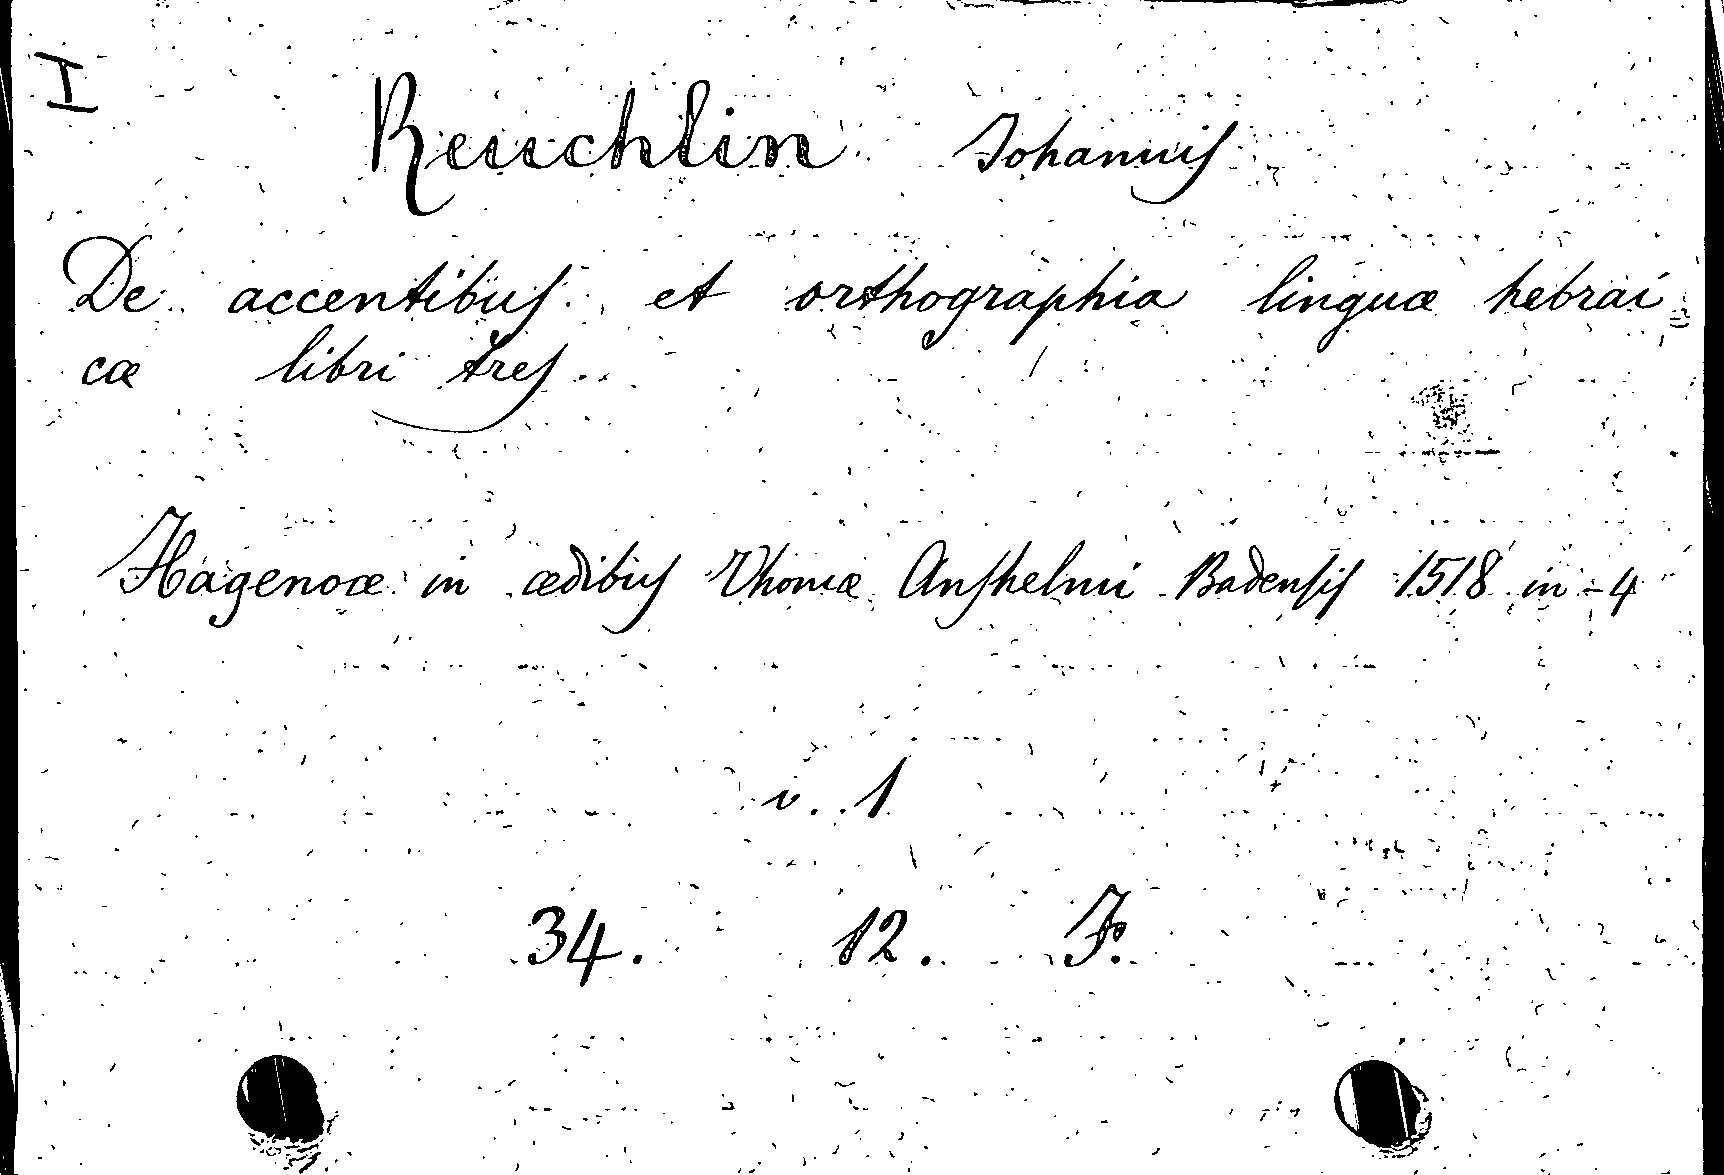 I
Reuchlin Johannis
De accentibus et orthographia linguæ hebrai=
cæ libri tres
Hagenoæ in ædibus Thomæ Anshelmi Badensis 1518 in-4
v. 1
34. 12. F.